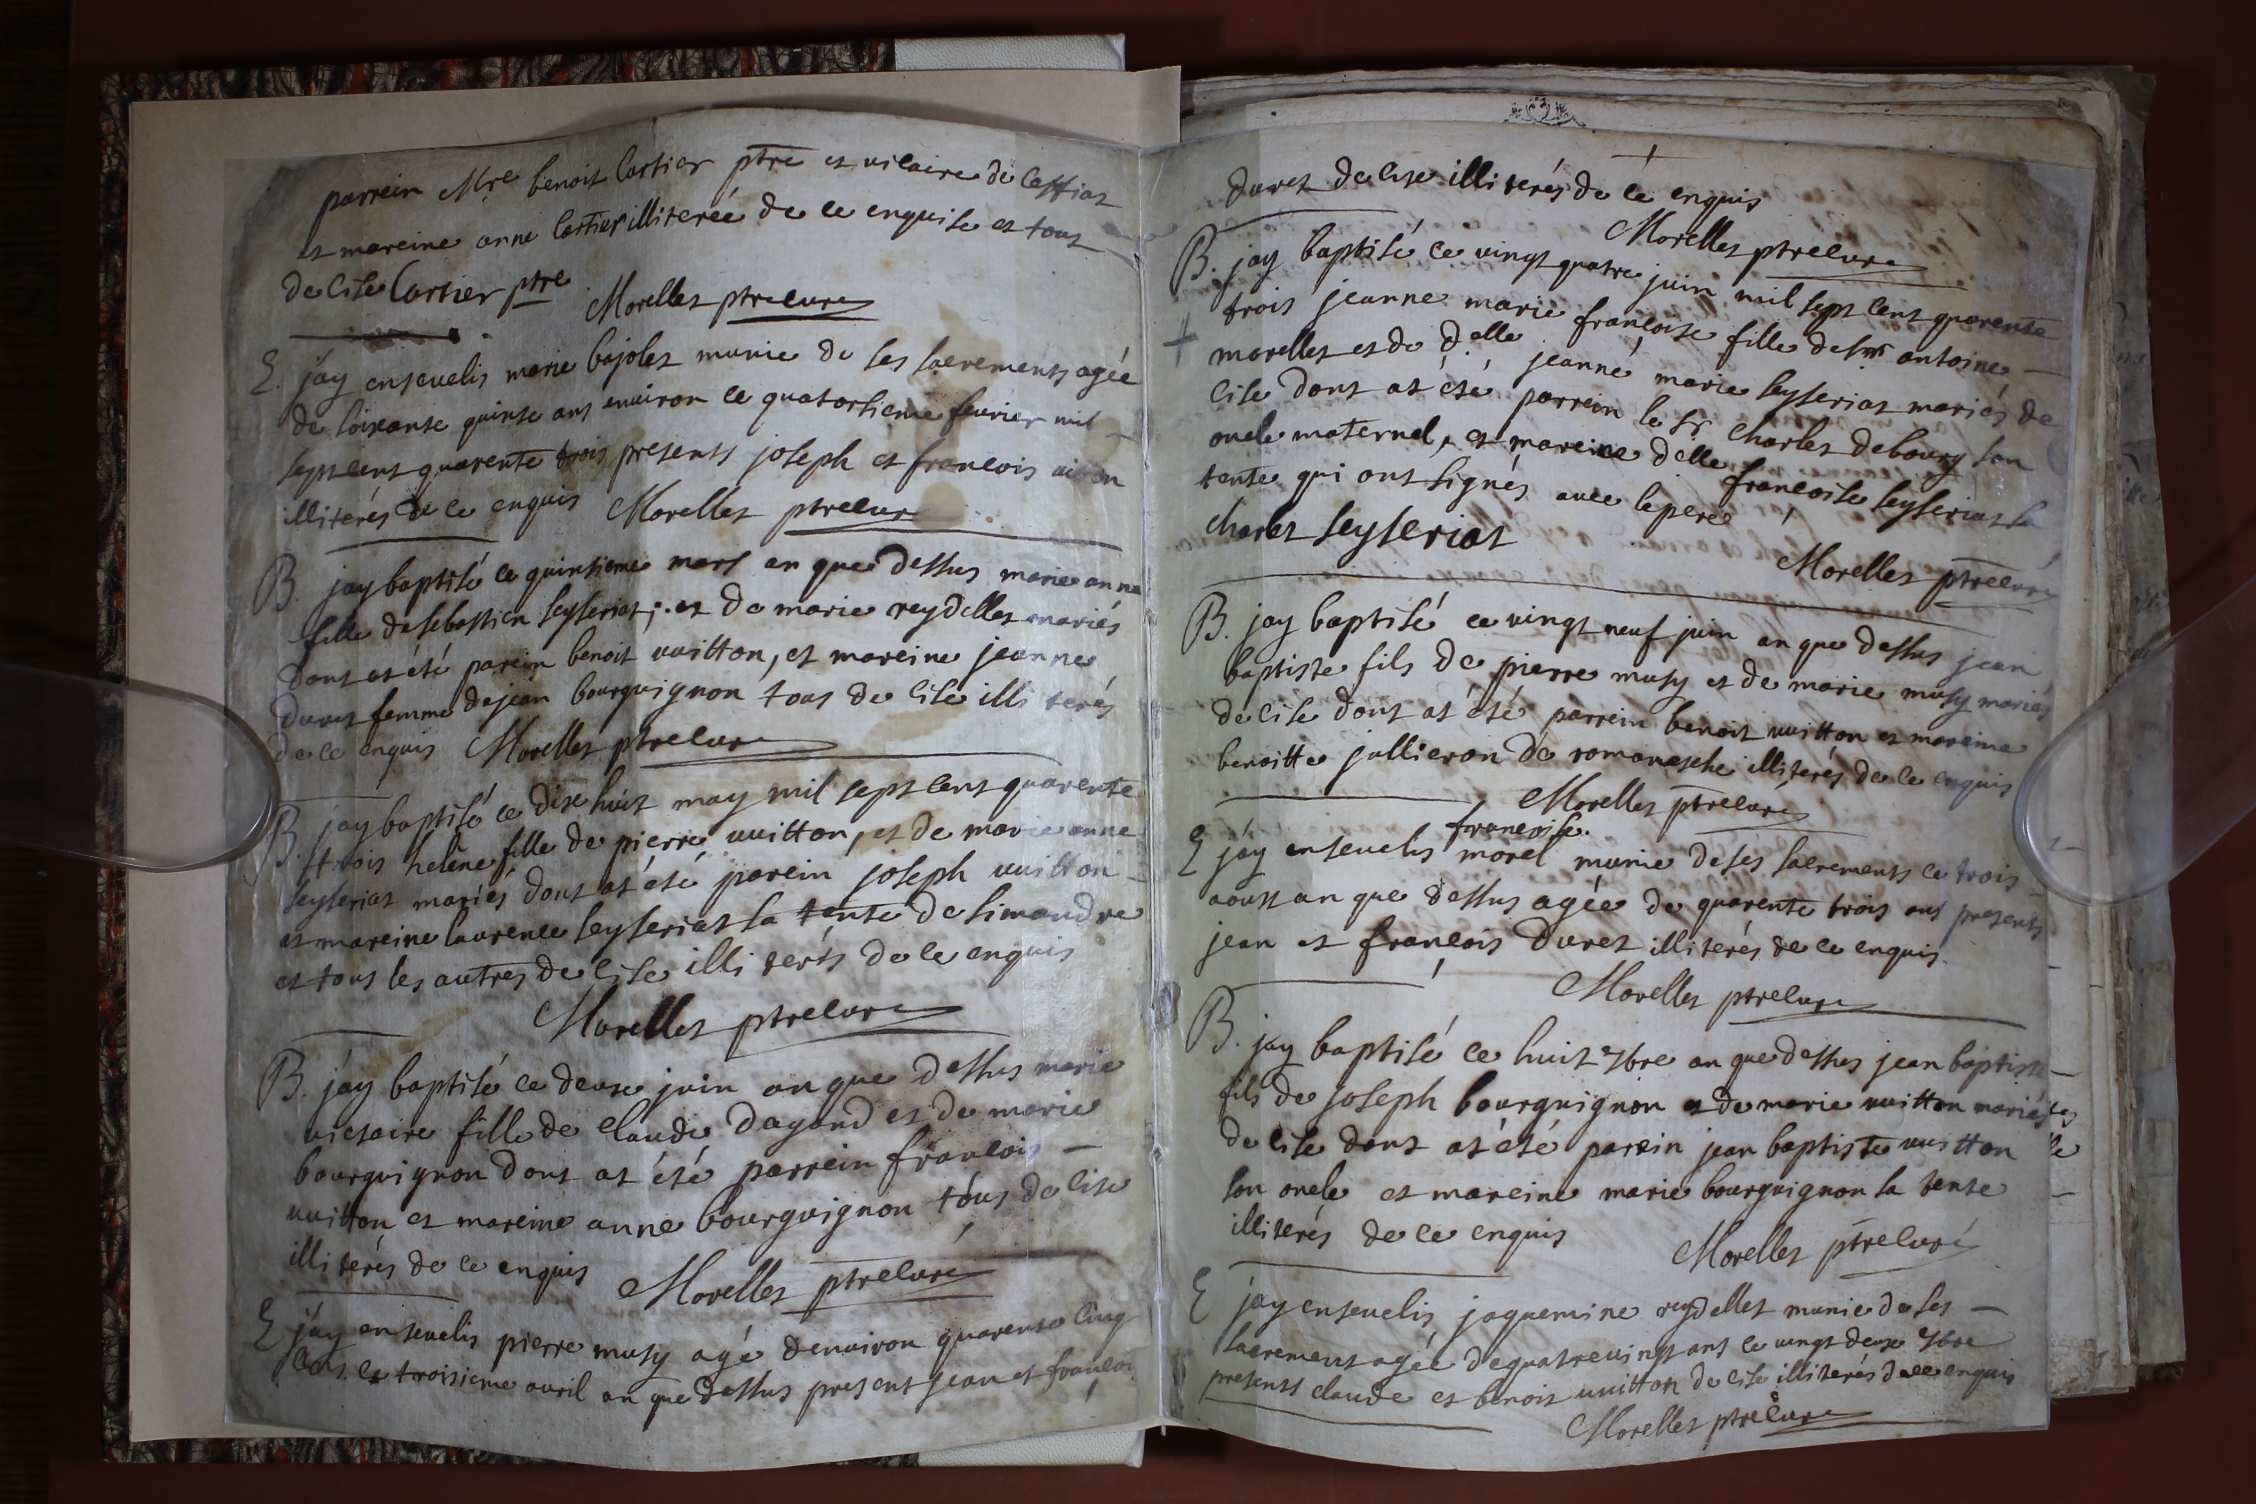 parrein Mre benoit Cartier ptre et vicaire de Ceffiat
et mareine anne Cartier illiterée de ce enquise et tous
de Cise Cartier ptre
Morellet ptre curé
E. jay ensevelis marie bajolet munie de ses sacrements agée
de soixante quinse ans environ ce quatorsieme fevrier mil
sept cent quarente trois presents joseph et francois vitton
illiterés de ce enquis Morellet ptre curé
B. jay baptisé ce quinsieme mars an que dessus marie anne
fille de sebastien seyseriat ; et de marie reydellet mariés
dont at été parein benoit vuitton, et mareine jeanne
duret femme de jean bourguignon tous de Cise illiterés
de ce enquis Morellet ptre curé
B. jay baptisé ce dix huit may mil sept cent quarente
trois helène fille de pierre vuitton, et de marie anne
seyseriat mariés dont at été parein joseph vuitton
et mareine laurence seyseriat sa tente de simandre
et tous les autres de Cise illiterés de ce enquis
Morellet ptre curé
B. jay baptisé ce deuxe juin an que dessus marie
victoire fille de Claude dagand et de marie
bourguignon dont at été parrein francois
vuitton et mareine anne bourguignon tous de Cise
illiterés de ce enquis Morellet ptre curé
E jay ensevelis pierre musy agé denviron quarente cinq
ans ce troisieme avril an que dessus present jean et francois
duret de Cise illiterés de ce enquis
Morellet ptre curé
B. jay baptisé ce vingt quatre juin mil sept cent quarente
trois jeanne marie francoise fille de sr antoine
morellet et de delle jeanne marie seyseriat mariés de
Cise dont at été parrein le sr Charles debourg son
oncle maternel, et mareine delle francoise seyseriat sa
tente qui ont signés avec le pere
Charlet seyseriat
Morellet ptre curé
B. jay baptisé ce vingt neuf juin an que dessus jean
baptiste fils de pierre musy et de marie musy mariés
de Cise dont at été parrein benoit vuitton et mareine
benoitte jullieron de romanesche illiterés de ce enquis
Morellet ptre curé
francoise
E jay ensevelis morel munie de ses sacrements ce trois
aoust an que dessus agée de quarente trois ans presents
jean et francois duret illiterés de ce enquis
Morellet ptre curé
B. jay baptisé ce huit 7bre an que dessus jean baptiste
fils de joseph bourguignon et de marie vuitton mariés
de Cise dont at été parein jean baptiste vuitton
son oncle et mareine marie bourguignon sa tente
illiterés de ce enquis
Morellet ptre curé
E jay ensevelis jaquemine reydellet munie de ses
sacrement agée de quatrevingt ans ce vingt deux 7bre
presents claude et benoit vuitton de Cise illiterés de ce enquis
Morellet ptre curé